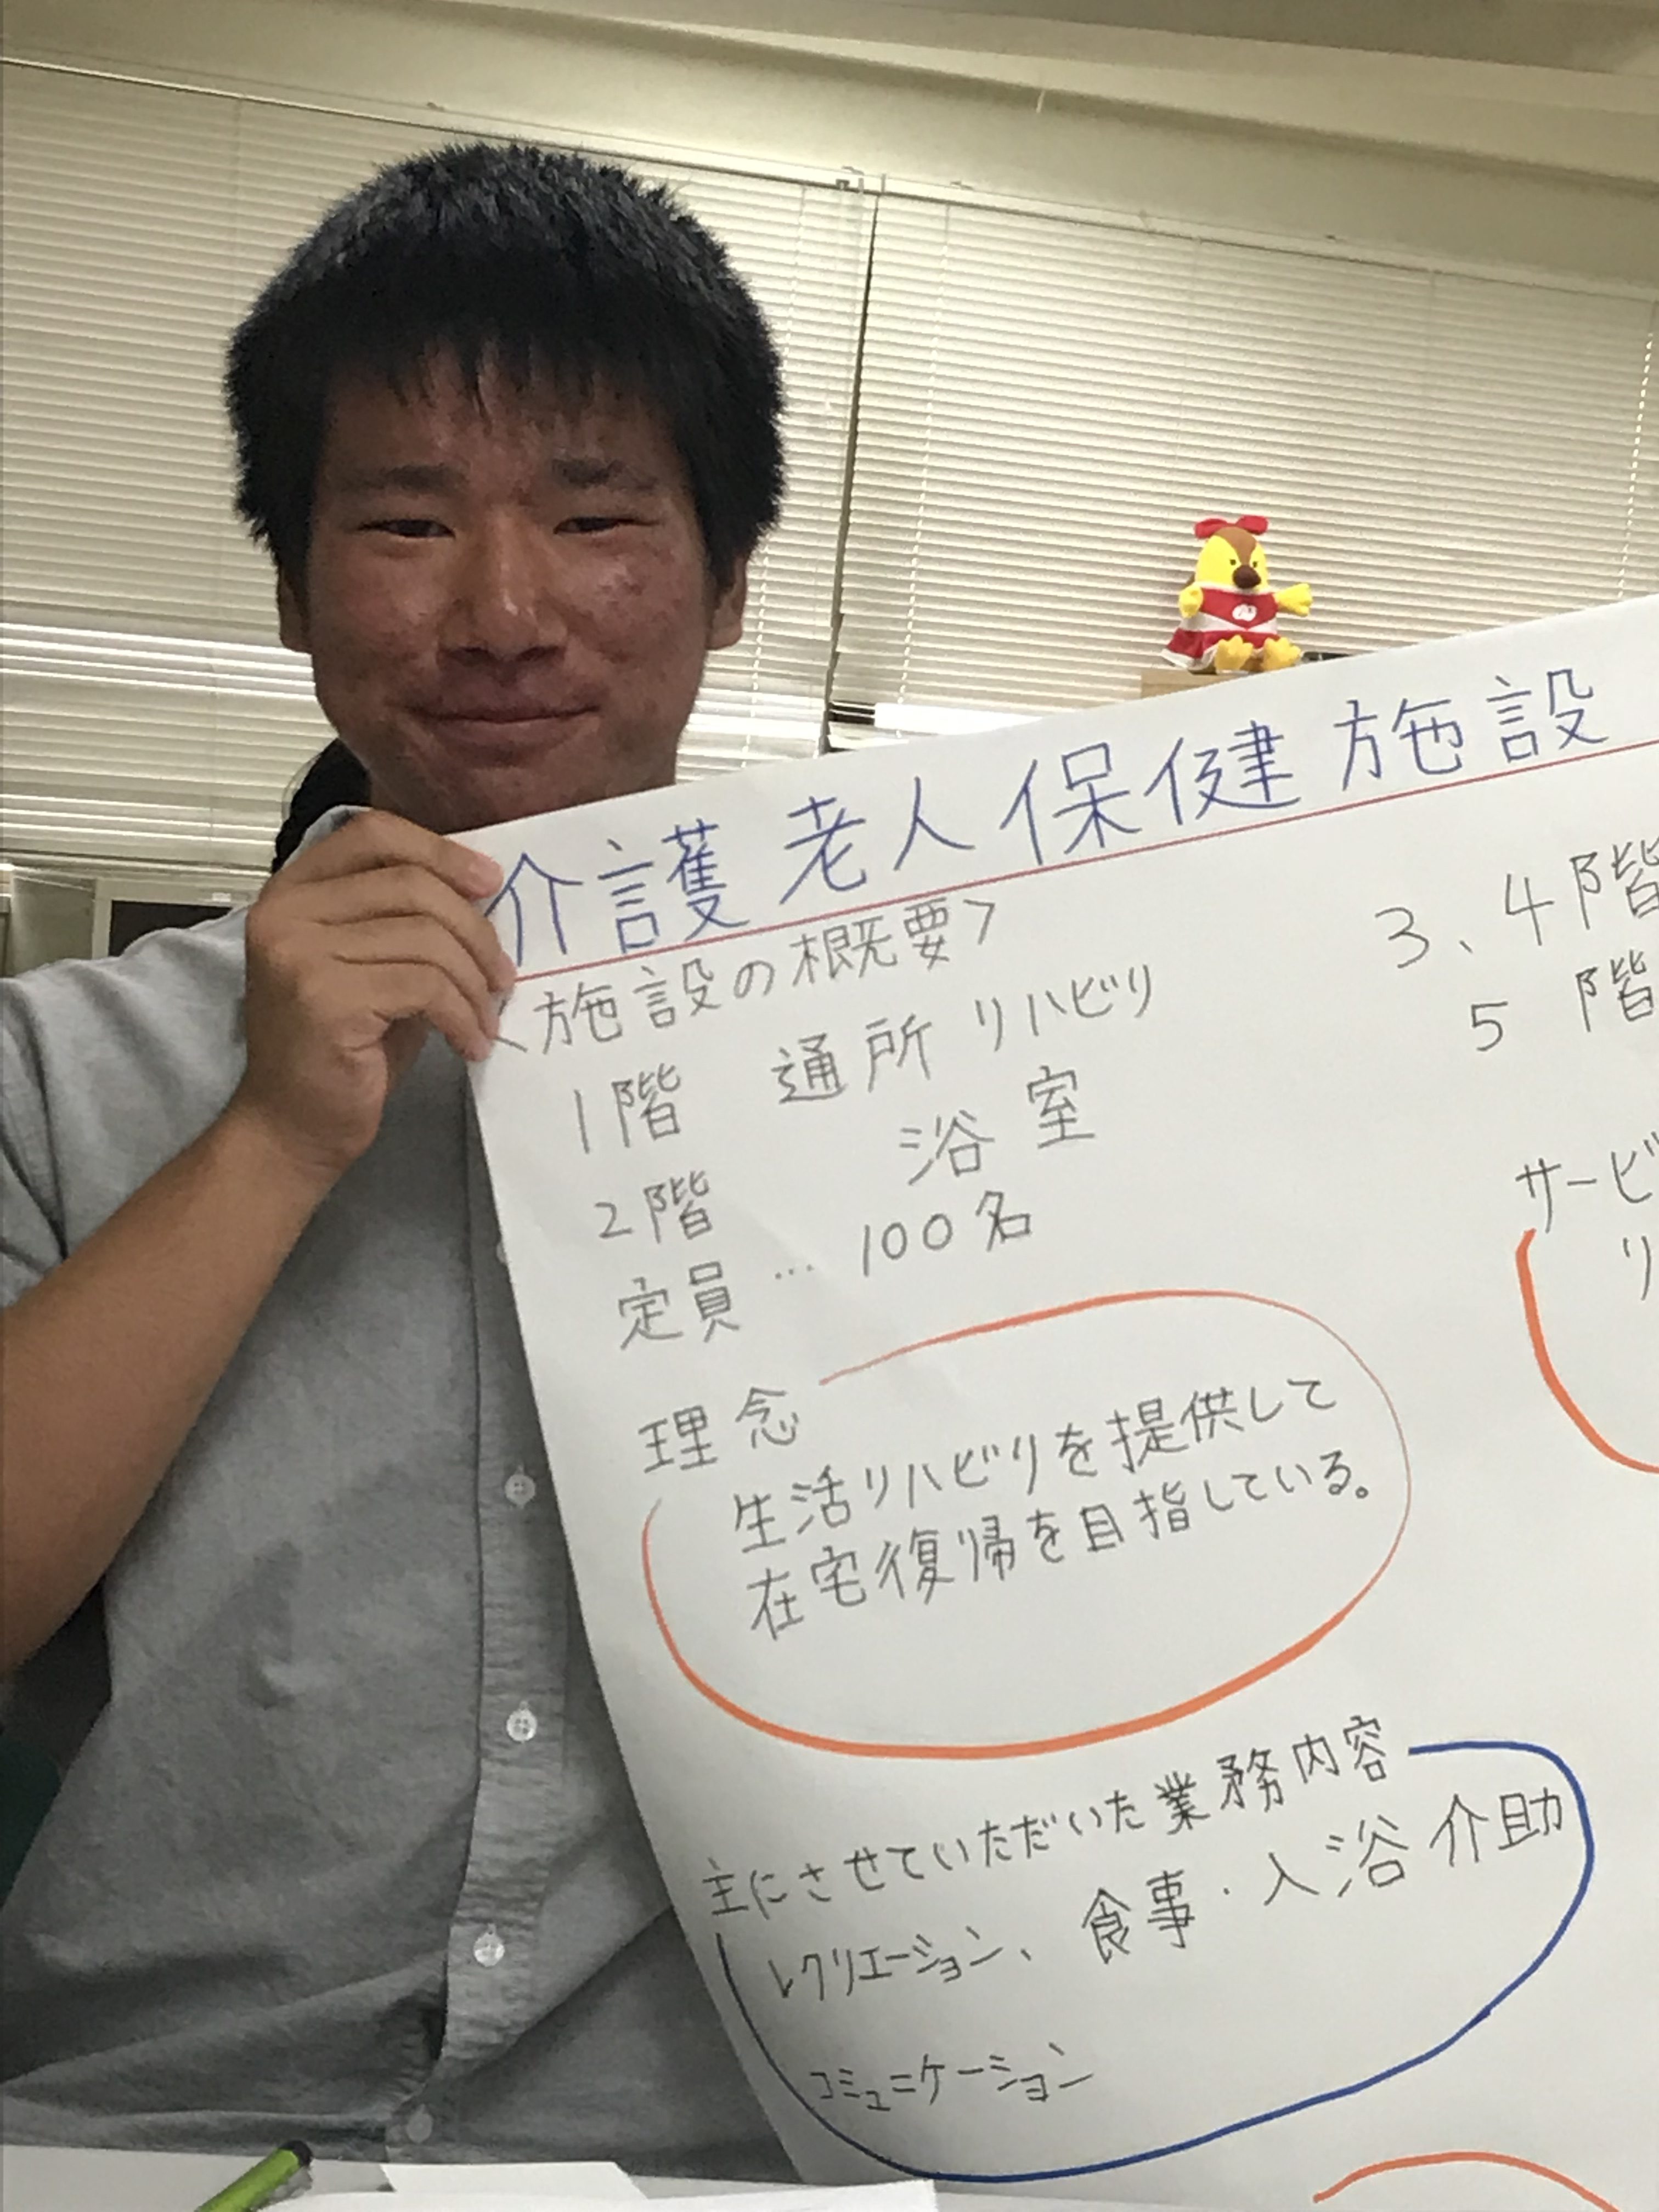 介護老人保健施設
<施設の概要>
1階 通所リハビリ
2階 浴室
定員…100名
理念
生活リハビリを提供して
在宅復帰を目指している。
主にさせていただいた業務内容
レクリエーション、食事・入浴介助
コミュニケーション
3、4階
5階
サービ
リ